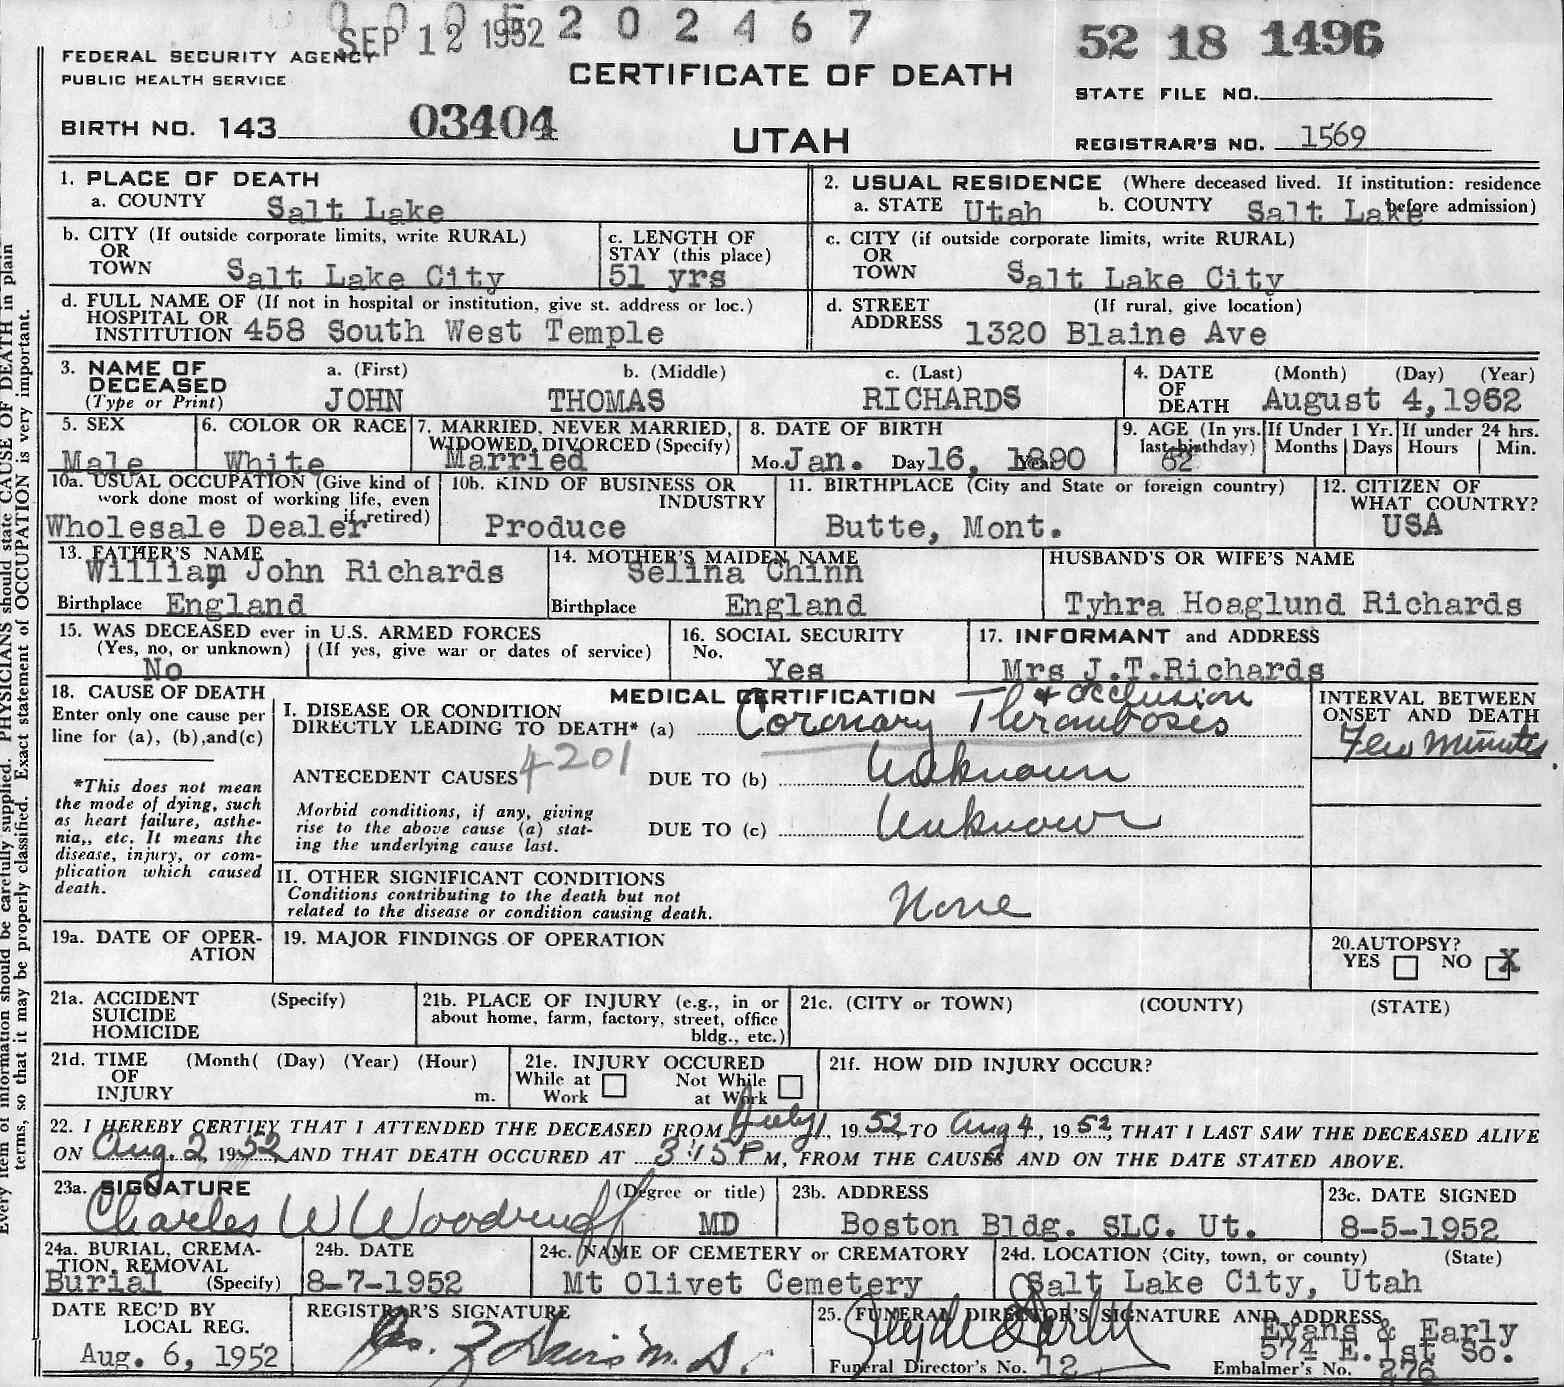 SEP 12 1952 202467
52 18 1496
FEDERAL SECURITY AGENCY
PUBLIC HEALTH SERVICE
CERTIFICATE OF DEATH
STATE FILE NO.
BIRTH NO. 143 03404
UTAH
REGISTRAR'S NO. 1569
1. PLACE OF DEATH
a. COUNTY Salt Lake
2. USUAL RESIDENCE (Where deceased lived. If institution: residence before admission)
a. STATE Utah b. COUNTY Salt Lake
b. CITY (If outside corporate limits, write RURAL)
OR
TOWN Salt Lake City
c. LENGTH OF
STAY (this place)
51 yrs
c. CITY (if outside corporate limits, write RURAL)
OR
TOWN Salt Lake City
d. FULL NAME OF (If not in hospital or institution, give st. address or loc.)
HOSPITAL OR
INSTITUTION 458 South West Temple
d. STREET (If rural, give location)
ADDRESS 1320 Blaine Ave
3. NAME OF
DECEASED
(Type or Print)
a. (First) b. (Middle) c. (Last)
JOHN THOMAS RICHARDS
4. DATE (Month) (Day) (Year)
OF
DEATH August 4, 1952
5. SEX
Male
6. COLOR OR RACE
White
7. MARRIED, NEVER MARRIED,
WIDOWED, DIVORCED (Specify)
Married
8. DATE OF BIRTH
Mo. Jan. Day 16, 1890
9. AGE (In yrs.
last birthday)
62
If Under 1 Yr.
Months Days
If under 24 hrs.
Hours Min.
10a. USUAL OCCUPATION (Give kind of
work done most of working life, even
if retired)
Wholesale Dealer
10b. KIND OF BUSINESS OR
INDUSTRY
Produce
11. BIRTHPLACE (City and State or foreign country)
Butte, Mont.
12. CITIZEN OF
WHAT COUNTRY?
USA
13. FATHER'S NAME
William John Richards
Birthplace England
14. MOTHER'S MAIDEN NAME
Selina Chinn
Birthplace England
HUSBAND'S OR WIFE'S NAME
Tyhra Hoaglund Richards
15. WAS DECEASED ever in U.S. ARMED FORCES
(Yes, no, or unknown) (If yes, give war or dates of service)
No
16. SOCIAL SECURITY
No.
Yes
17. INFORMANT and ADDRESS
Mrs J.T.Richards
18. CAUSE OF DEATH
Enter only one cause per
line for (a), (b),and(c)
*This does not mean
the mode of dying, such
as heart failure, asthe-
nia,, etc. It means the
disease, injury, or com-
plication which caused
death.
MEDICAL CERTIFICATION
I. DISEASE OR CONDITION
DIRECTLY LEADING TO DEATH* (a) Coronary Thromboses
+ occlusion
ANTECEDENT CAUSES 4201 DUE TO (b) Unknown
Morbid conditions, if any, giving
rise to the above cause (a) stat-
ing the underlying cause last.
DUE TO (c) Unknown
INTERVAL BETWEEN
ONSET AND DEATH
Few minutes.
II. OTHER SIGNIFICANT CONDITIONS
Conditions contributing to the death but not
related to the disease or condition causing death.
None
19a. DATE OF OPER-
ATION
19. MAJOR FINDINGS OF OPERATION
20.AUTOPSY?
YES NO X
21a. ACCIDENT (Specify)
SUICIDE
HOMICIDE
21b. PLACE OF INJURY (e.g., in or
about home, farm, factory, street, office
bldg., etc.)
21c. (CITY or TOWN) (COUNTY) (STATE)
21d. TIME (Month( (Day) (Year) (Hour)
OF
INJURY m.
21e. INJURY OCCURED
While at
Work
Not While
at Work
21f. HOW DID INJURY OCCUR?
22. I HEREBY CERTIFY THAT I ATTENDED THE DECEASED FROM July 1, 1952 TO Aug 4, 1952, THAT I LAST SAW THE DECEASED ALIVE
ON Aug. 2, 1952, AND THAT DEATH OCCURED AT 3:15 P M., FROM THE CAUSES AND ON THE DATE STATED ABOVE.
23a. SIGNATURE (Degree or title)
Charles W Woodruff MD
23b. ADDRESS
Boston Bldg. SLC. Ut.
23c. DATE SIGNED
8-5-1952
24a. BURIAL, CREMA-
TION, REMOVAL
Burial (Specify)
24b. DATE
8-7-1952
24c. NAME OF CEMETERY or CREMATORY
Mt Olivet Cemetery
24d. LOCATION (City, town, or county) (State)
Salt Lake City, Utah
DATE REC'D BY
LOCAL REG.
Aug. 6, 1952
REGISTRAR'S SIGNATURE
M.D.
25. FUNERAL DIRECTOR'S SIGNATURE AND ADDRESS
Evans & Early
574 E. 1st So.
Funeral Director's No. 12 Embalmer's No. 276
Every item of information should be carefully supplied. PHYSICIANS should state CAUSE OF DEATH in plain
terms, so that it may be properly classified. Exact statement of OCCUPATION is very important.